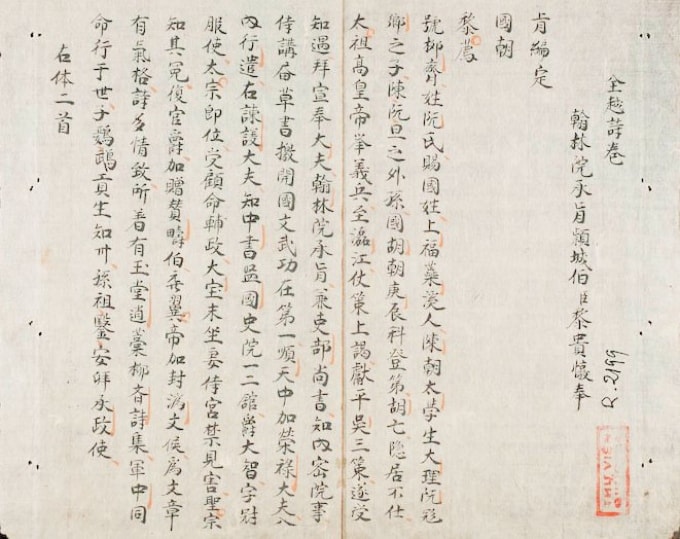 全越詩卷
翰林院承旨潁城伯臣黎貴惇奉
R.2199
旨編定
國朝
黎廌
號抑齋姓阮氏賜國姓上福蘂溪人陳朝太學生大理阮飛
卿之子陳阮旦之外孫國胡朝庚辰科登第胡亡隐居不仕
太祖高皇帝举義兵至瀘江仗策上謁獻平吳三策遂受
知遇拜宣奉大夫翰林院承旨兼吏部尚書知內密院事
侍講居草書撽開國文武功在第一順天中加榮禄大夫入
內行遣右諫議大夫知中書監國史院一二舘爵大智字冠
服使太宗即位受顧命輔政大宝末坐妾侍宮禁見害聖宗
知其冤復官爵加贈賛疇伯翼帝加封濟文侯為文章
有氣格詩多情致所著有玉堂遺藁抑斉詩集軍中同
命行于世子鸚鵡具生知州孫祖鑒安邦承政使
右体二首